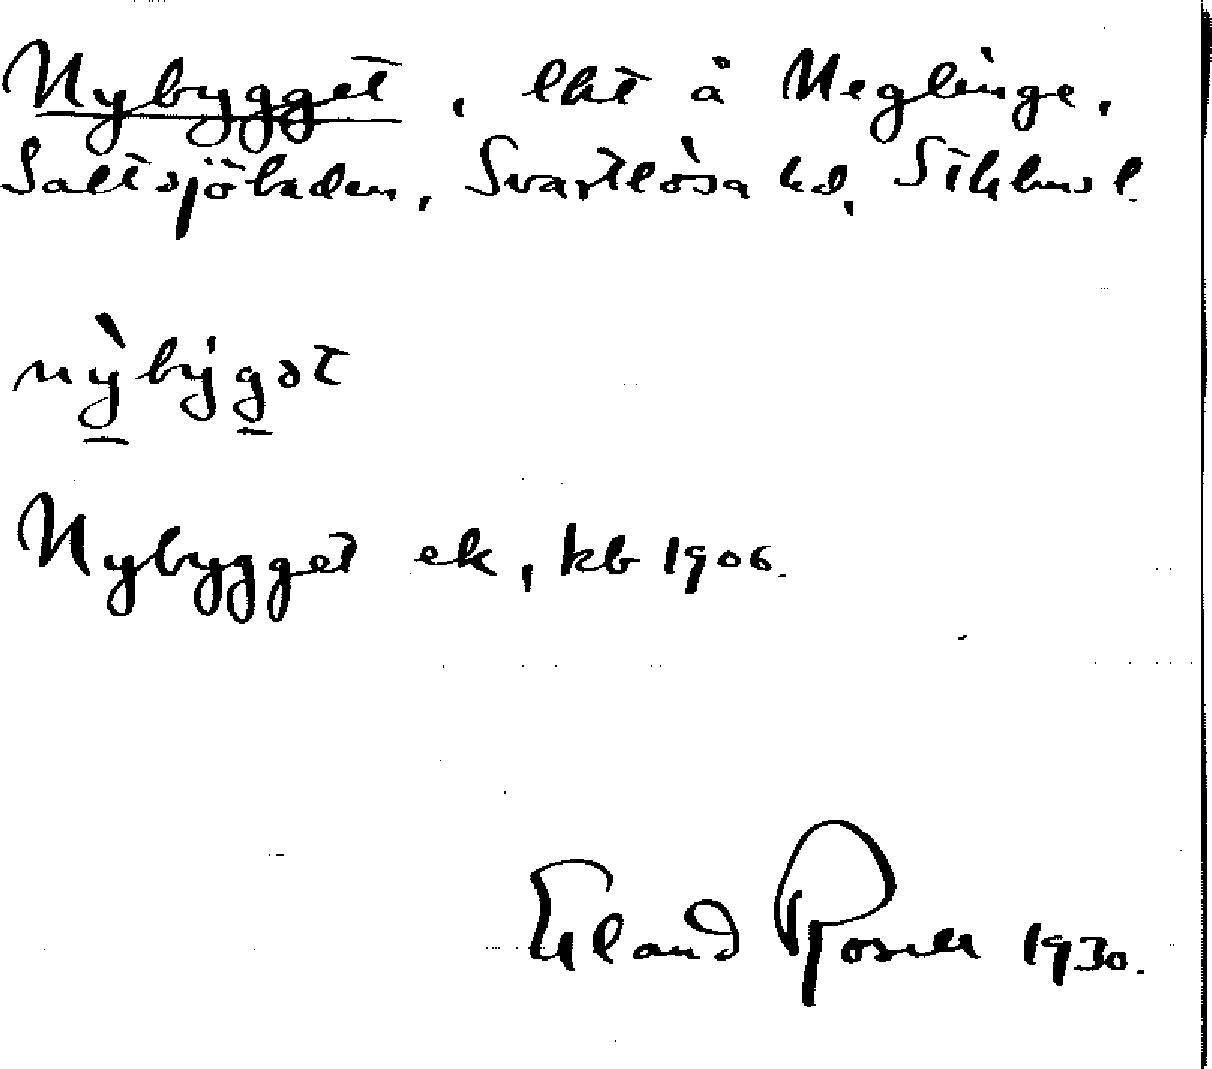 Nybygget, lht å Neglinge,
Saltsjöbaden, Svartlösa hd, Sthlms l.
nỳbýgət
Nybygget ek, kb 1906.
Erland Rosell 1930.